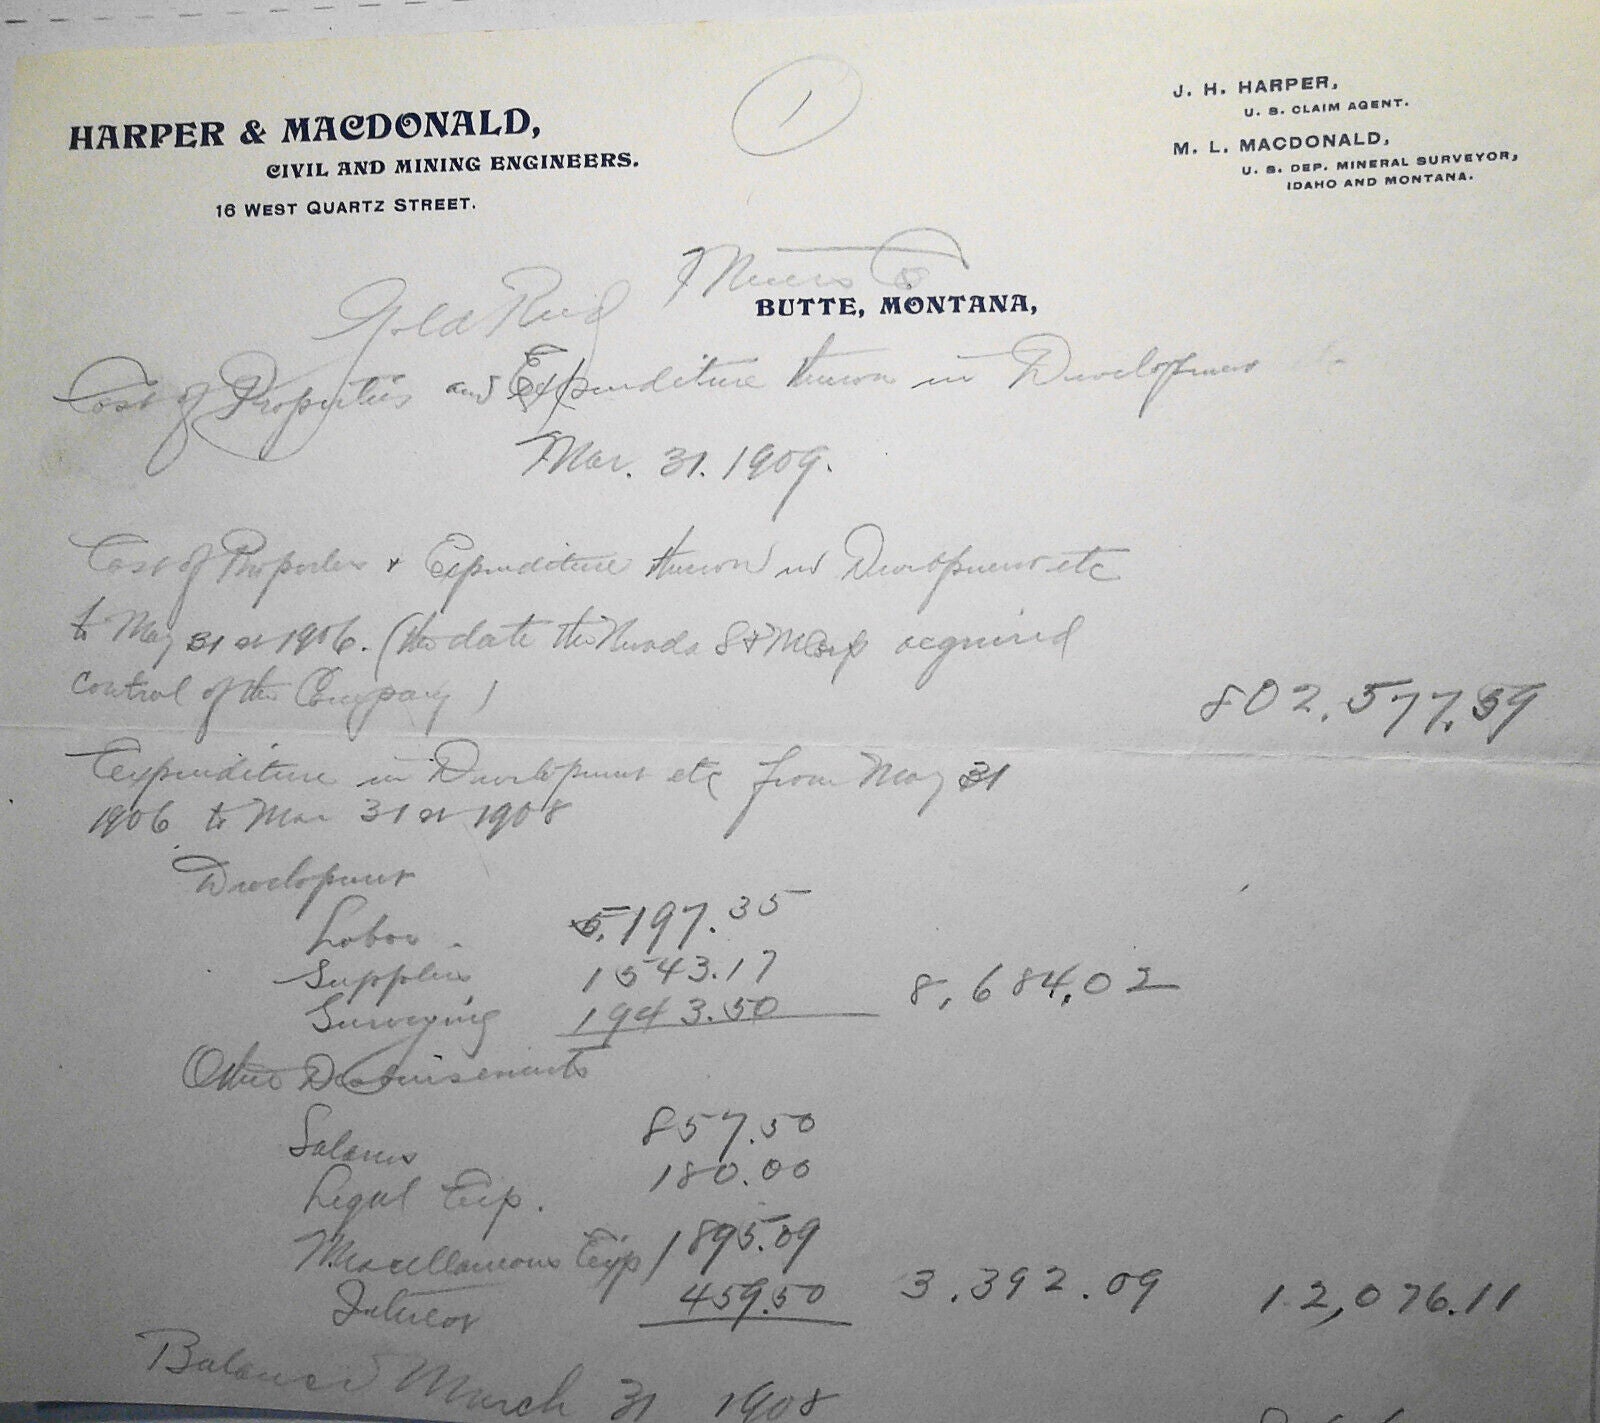 1
J. H. HARPER,
U. S. CLAIM AGENT.
M. L. MACDONALD,
U. S. DEP. MINERAL SURVEYOR,
IDAHO AND MONTANA.
HARPER & MACDONALD,
CIVIL AND MINING ENGINEERS.
16 WEST QUARTZ STREET.
Gold Reed Mines Co
BUTTE, MONTANA,
Cost of Properties and Expenditure thereon in Development
Mar. 31. 1909.
Cost of Properties & Expenditure thereon in Development etc
to May 31st 1906. (the date the Nevada S & M Corp acquired
control of the Company) 802,577.59
Expenditure in Development etc from May 31
1906 to Mar 31st 1908
Development
Labor 5,197.35
Supplies 1543.17 8,684.02
Surveying 1943.50
Other Disbursements
Salaries 857.50
Legal Exp. 180.00
Miscellaneous Exp 1895.09
Interest 459.50 3,392.09 12,076.11
Balance March 31 1908